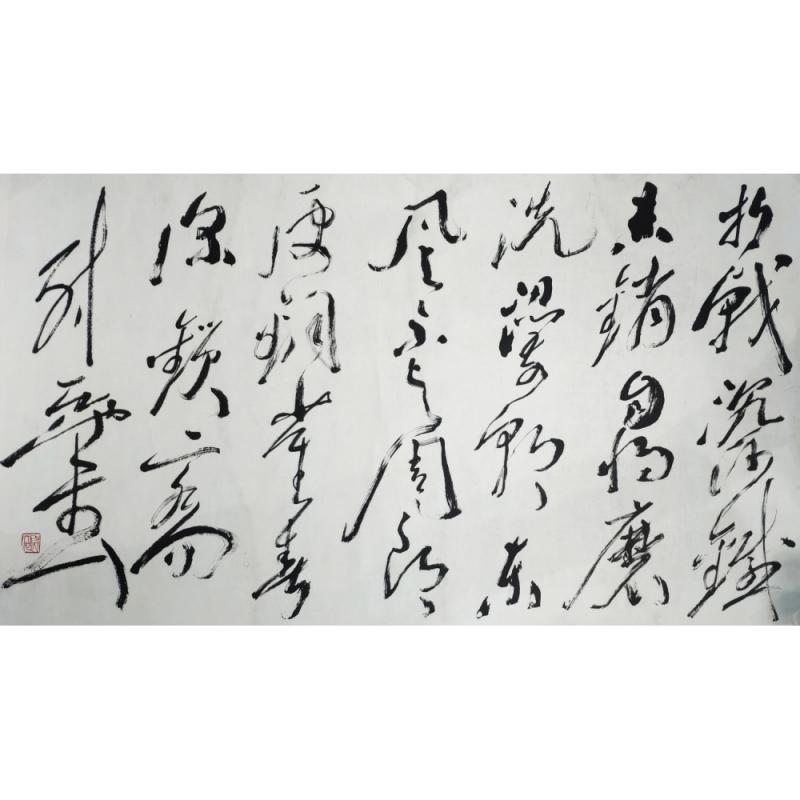 折戟沉沙鐵
未銷自將磨
洗認前朝東
風不与周郎
便銅雀春
深鎖二喬